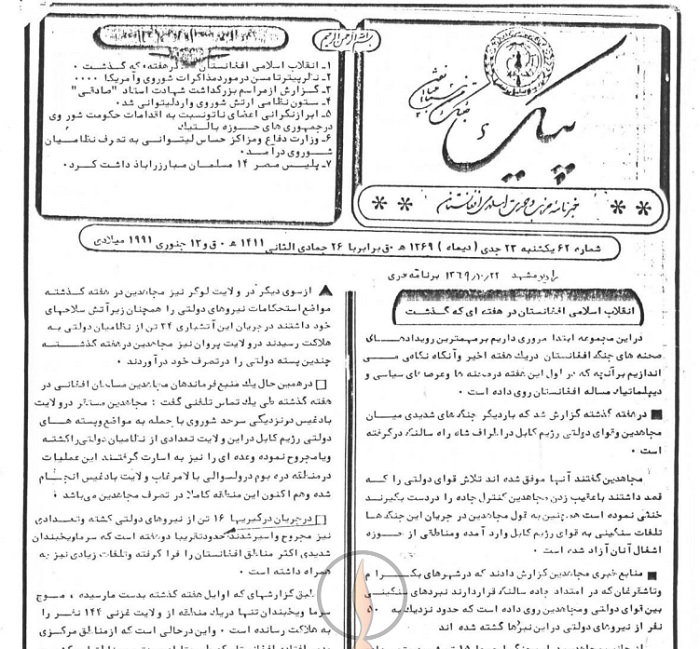 بسم الله الرحمن الرحیم
پیک
خبرنامه
شماره ۶۲ یکشنبه ۲۳ جدی ( دیماه ) ۱۳۶۹ ه.ق برابر با ۲۶ جمادی الثانی ۱۴۱۱ ه.ق و ۱۳ جنوری ۱۹۹۱ میلادی
۱ـ انقلاب اسلامی افغانستان در هفته که گذشت ۰
۲ـ نالر پیترتامسن در مورد مذاکرات شوروی و آمریکا ۰۰۰۰
۳ـ گزارش از مراسم بزرگداشت شهادت استاد "صادقی"
۴ـ ستون نظامی ارتش شوروی وارد لیتوانی شد ۰
۵ـ ابراز نگرانی اعضای ناتو نسبت به اقدامات حکومت شوروی
در جمهوری های حوزه بالتیک
۶ـ وزارت دفاع و مراکز حساس لیتوانی به تصرف نظامیان
شوروی در آمد ۰
۷ـ پلیس مصر ۱۴ مسلمان مبارز را باز داشت کرد ۰
رادیو مشهد ۱۳۶۹/۱۰/۲۲ برنامه دری
انقلاب اسلامی افغانستان در هفته ای که گذشت
در این مجموعه ابتدا مروری داریم بر مهمترین رویدادهای
صحنه های جنگ افغانستان در یک هفته اخیر و آنگاه نگاهی می
اندازیم بر آنچه که در اول این هفته در صحنه ها و عرصه ای سیاسی و
دیپلماتیک مساله افغانستان روی داده است ۰
در هفته گذشته گزارش شد که بار دیگر جنگ های شدیدی میان
مجاهدین و قوای دولتی رژیم کابل در اطراف شاه راه سالنگ در گرفته
است ۰
مجاهدین گفتند آنها موفق شده اند تلاش قوای دولتی را که
قصد داشتند با عقب زدن مجاهدین کنترل جاده را در دست بگیرند
خنثی نموده است همچنین به قول مجاهدین در جریان این جنگ ها
تلفات سنگینی به قوای رژیم کابل وارد آمده و مناطقی از حوزه
اشغال آنان آزاد شده است ۰
منابع خبری مجاهدین گزارش دادند که در شهرهای بگرام
و تاشقرغان که در امتداد جاده سالنگ قرار دارند نبردهای سنگینی
بین قوای دولتی و مجاهدین روی داده است که حدود نزدیک به ۵۰
نفر از نیروهای دولتی در این نبردها کشته شده اند
از سوی دیگر در ولایت لوگر نیز مجاهدین در هفته گذشته
مواضع استحکامات نیروهای دولتی را همچنان زیر آتش سلاحهای
خود داشتند در جریان این آتشباری ۲۴ تن از نظامیان دولتی به
هلاکت رسیدند در ولایت پروان نیز مجاهدین در هفته گذشته
چندین پسته دولتی را در تصرف خود در آوردند ۰
در همین حال یک منبع فرماندهان مجاهدین مسلمان افغانی در
هفته گذشته طی یک تماس تلفنی گفت : مجاهدین مستقر در ولایت
بادغیس در نزدیکی سرحد شوروی با حمله به مواضع و پسته های
دولتی رژیم کابل در این ولایت تعدادی از نظامیان دولتی را کشته
و یا مجروح نموده و عده ای را نیز به اسارت گرفتند این عملیات
در منطقه دره بوم در ولسوالی بالا مرغاب ولایت بادغیس انجام
شده و هم اکنون این منطقه کاملا در تصرف مجاهدین می باشد
در جریان درگیریها ۱۶ تن از نیروهای دولتی کشته و تعدادی
نیز مجروح و اسیر شدند حدود تقریبا دو هفته است که سرما و یخبندان
شدیدی اکثر مناطق افغانستان را فرا گرفته و تلفات زیادی نیز به
همراه داشته است ۰
طبق گزارشهای که اوایل هفته گذشته بدست ما رسیده ، موج
سرما و یخبندان تنها در یک منطقه از ولایت غزنی ۱۴۴ نفر را
به هلاکت رسانده است ۰ و این در حالی است که از مناطق مرکزی